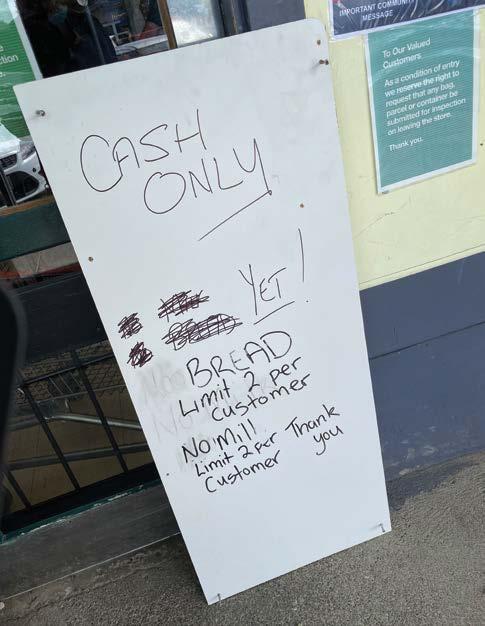 IMPORTANT COMMUNITY
MESSAGE
To Our Valued
Customers
As a condition of entry
we reserve the right to
request that any bag,
parcel or container be
submitted for inspection
on leaving the store.
Thank you.
CASH
ONLY
YET!
BREAD
Limit 2 per
customer
No Mill
Limit 2 per
Customer
Thank
you